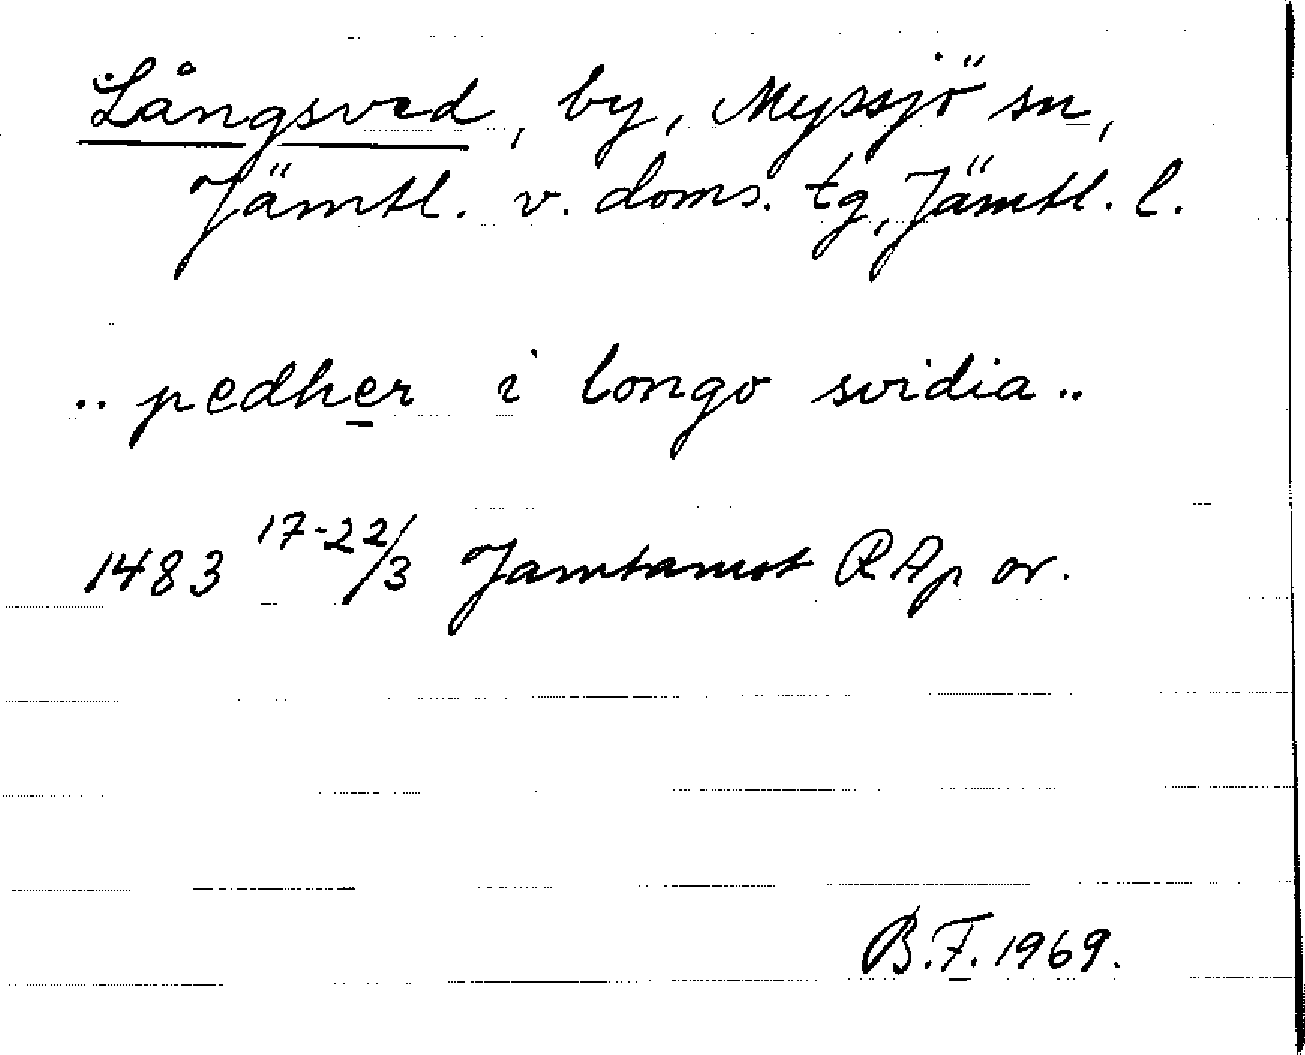 Långsved, by, Myssjö sn,
Jämtl. v. doms. tg, Jämtl. l.
.. pedher i longo svidia ..
1483 17-22/3 Jamtamot RAp or.
B.F. 1969.